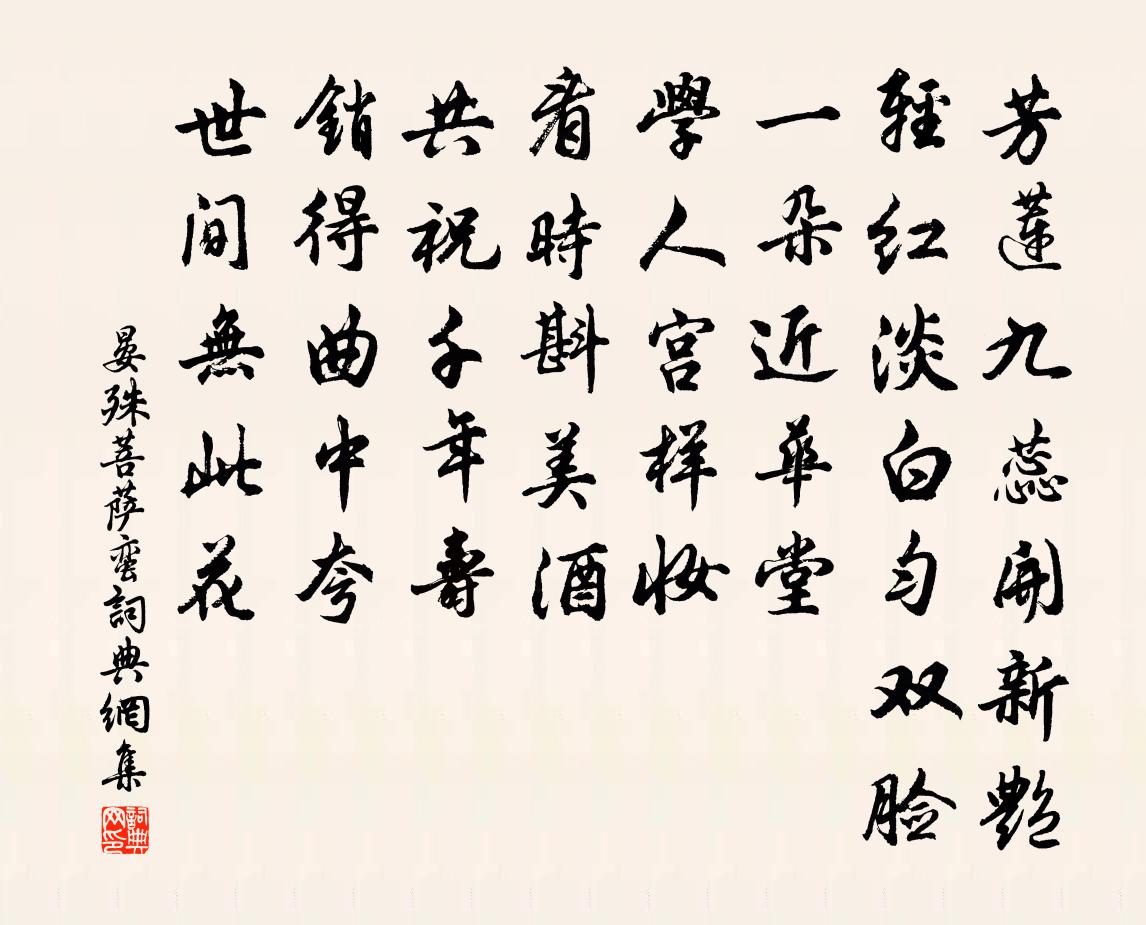 芳蓮九蕊開新艷
輕红淡白匀双脸
一朵近華堂
學人宫样妆
看時斟美酒
共祝千年壽
銷得曲中夸
世间無此花
晏殊菩萨蛮詞典網集
詞典网印